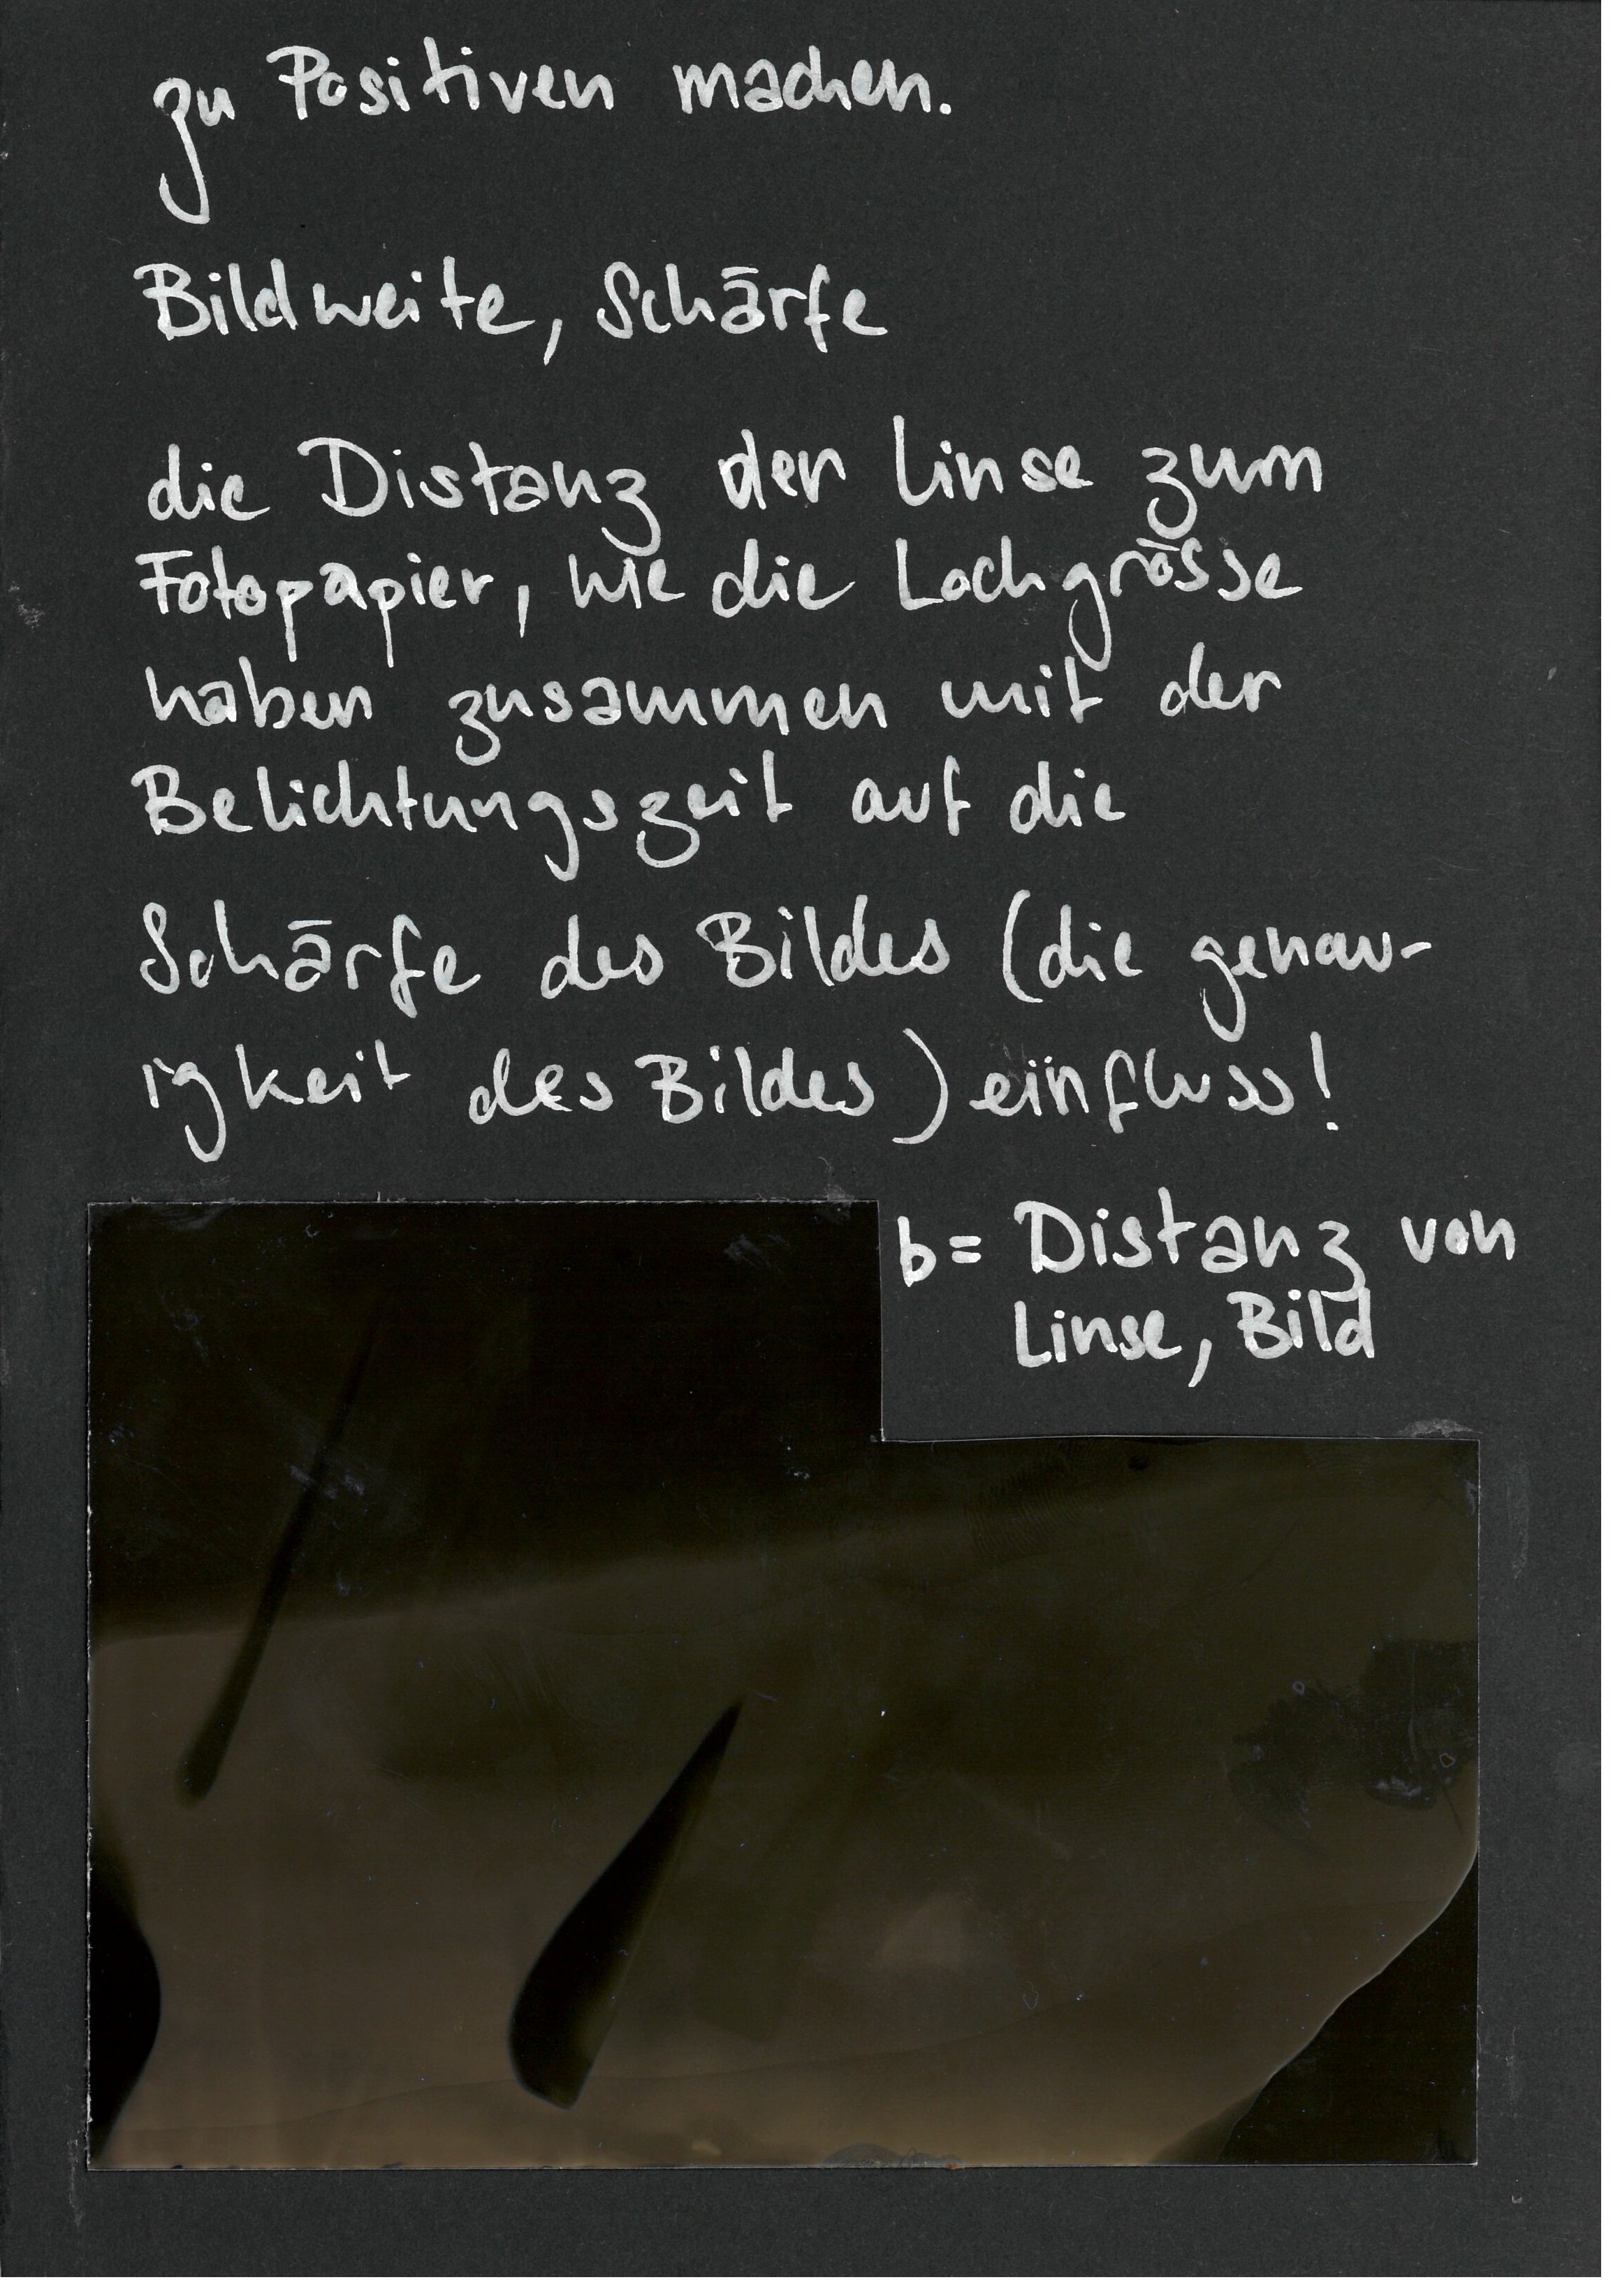 zu Positiven machen.
Bildweite, Schärfe
die Distanz der Linse zum
Fotopapier, wie die Lochgrösse
haben zusammen mit der
Belichtungszeit auf die
Schärfe des Bildes (die genau-
igkeit des Bildes) einfluss!
b= Distanz von
Linse, Bild